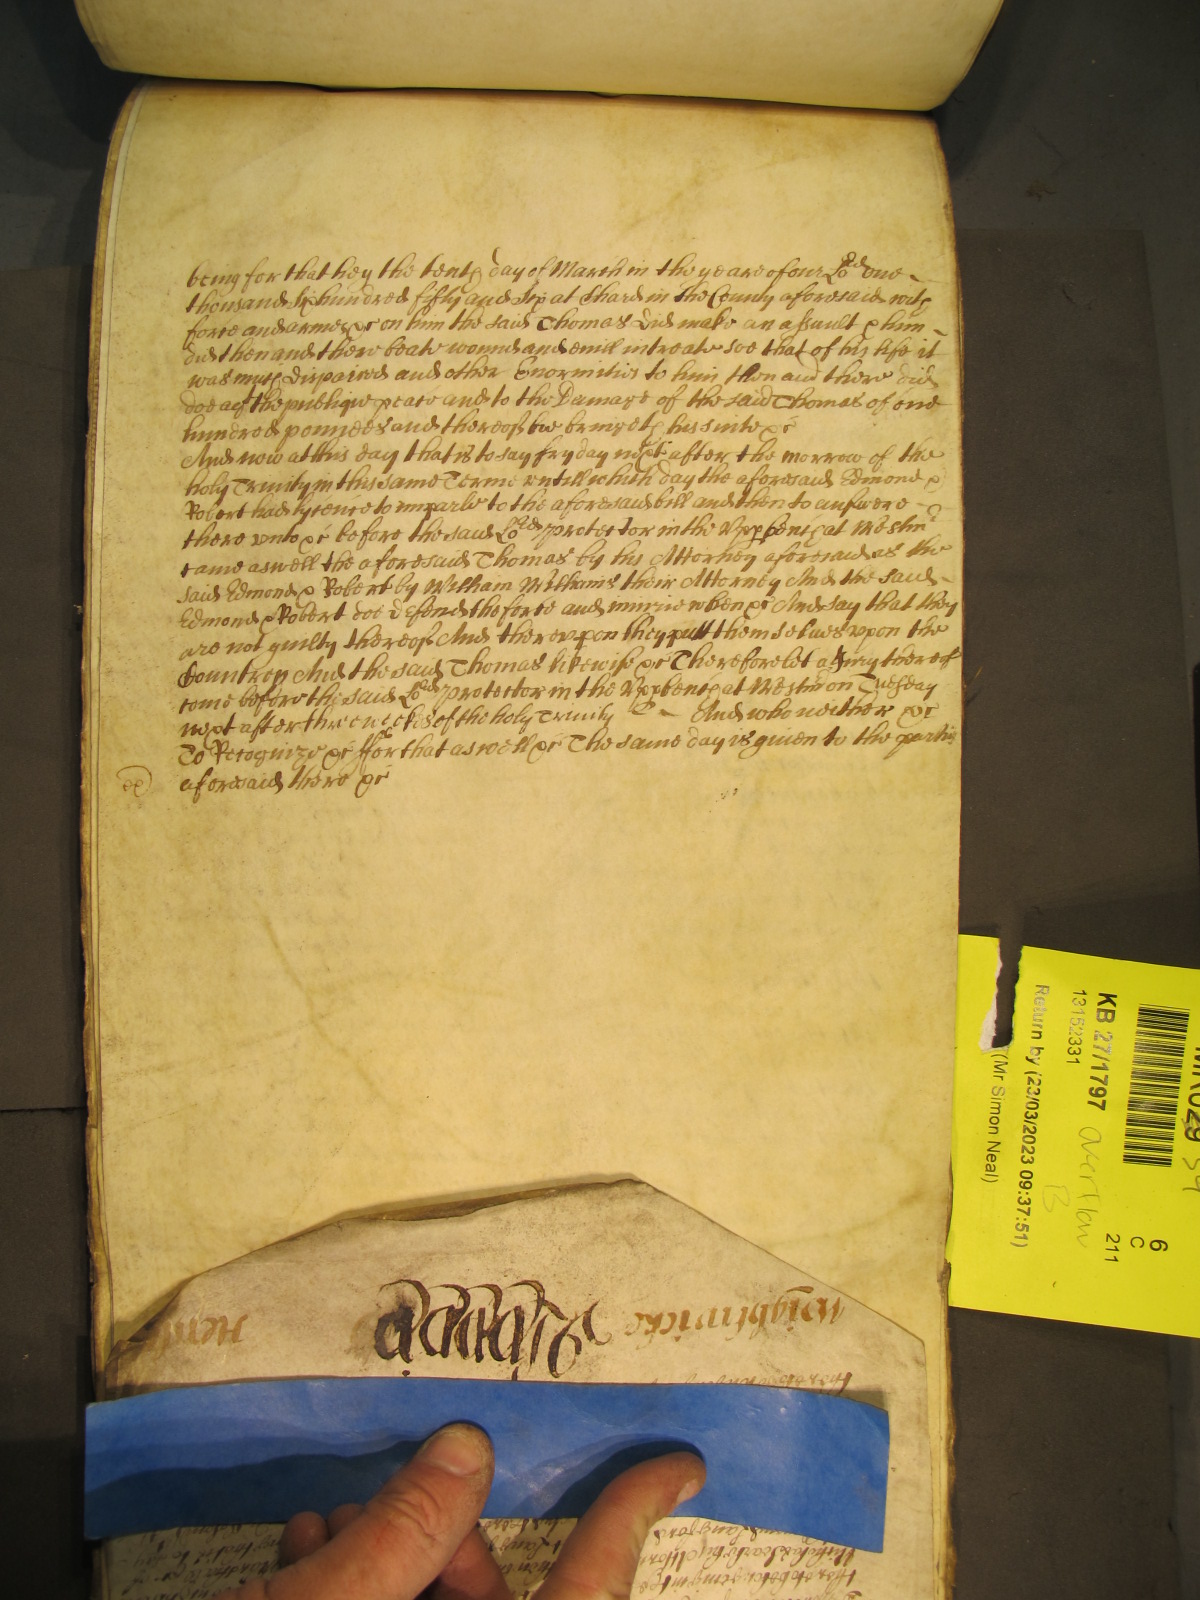 being for that hey the tenth day of March in the yeare of our Lord one
thousand six hundred fifty and six at Chard in the County aforesaid with
force and armes &c on him the said Thomas did make an assault & him
did then and there beate wound and evill intreate soe that of his life it
was much dispaired and other Enormities to him then and there did
doe agt the publique peace and to the Damage of the said Thomas of one
hundred pounds and thereof he bringeth his suite &c
And now at this day that is to say fryday next after the morrow of the
holy Trinity in this same Terme untill which day the aforesaid Edmond &
Robert had lycence to imparle to the aforesaid bill and then to answere
there unto &c before the said Lord Protector in the Upper bench at Westm
came aswell the aforesaid Thomas by his Attorney aforesaid as the
said Edmond & Robert by William Williams their Attorney And the said
Edmond & Robert doe defend the force and iniurie when &c And say that they
are not guilty thereof And thereupon they putt themselves upon the
Countrey And the said Thomas likewise &c Therefore let a Jury thereof
come before the said Lord Protector in the Upper bench at Westm on Tuesday
next after three weekes of the holy Trinity And who neither &c
To Recognize &c ffor that aswell &c The same day is given to the parties
aforesaid there &c
Wightwicke
KB 27/1797
13152331
Return by (23/03/2023 09:37:51)
(Mr Simon Neal)
overflow
B
6
C
211